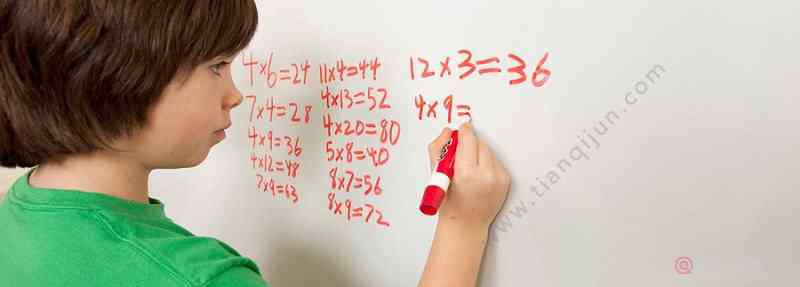 4×6=24
7×4=28
4×9=36
4×12=48
7×9=63
11×4=44
4×13=52
4×20=80
5×8=40
8×7=56
8×9=72
12×3=36
4×9=
www.tianqijun.com